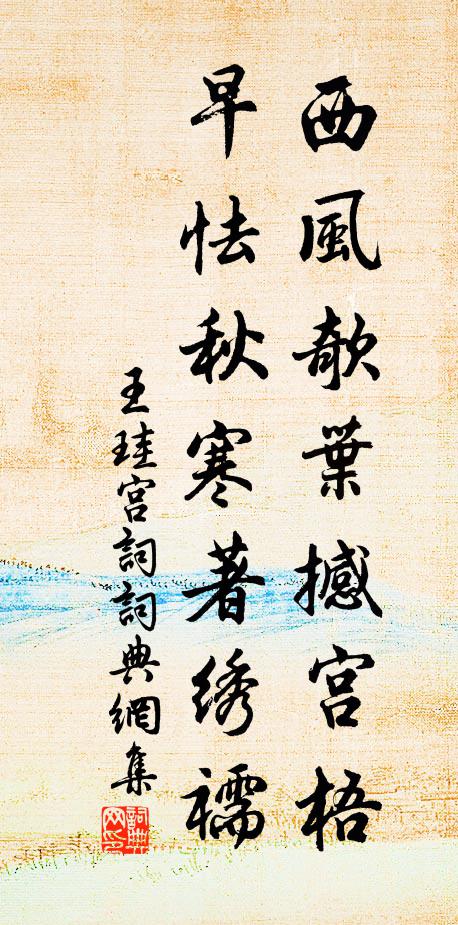 西風欹葉撼宫梧
早怯秋寒著绣襦
王珪宫詞詞典網集
詞典网印